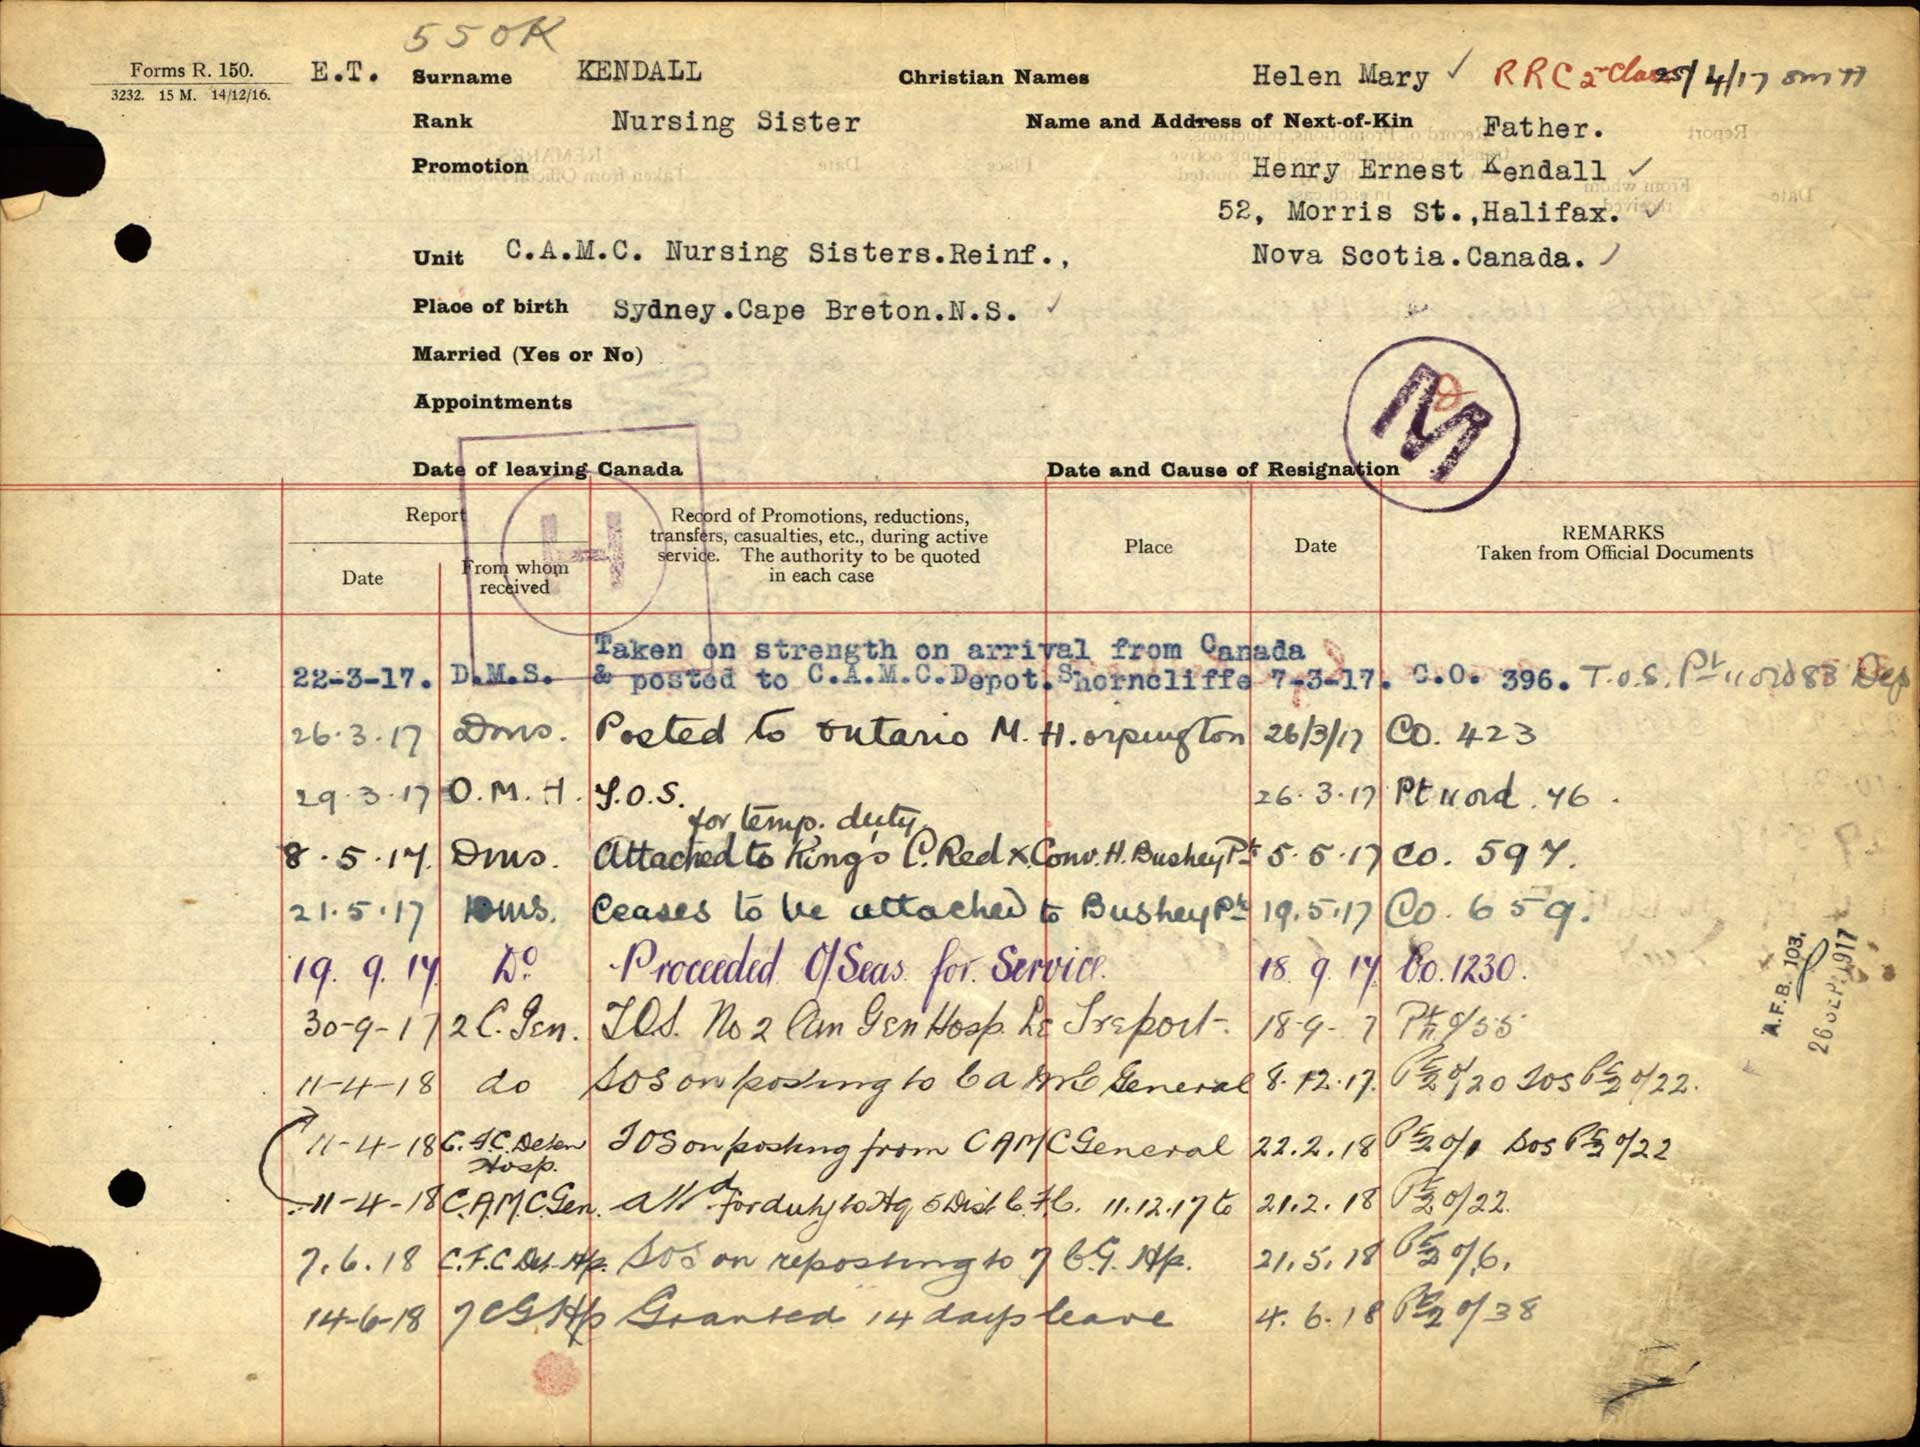 550K
Forms R. 150.
3232. 15 M. 14/12/16.
E.T. Surname KENDALL Christian Names Helen Mary ✓ RRC 2nd Class 25/4/17
Rank Nursing Sister Name and Address of Next-of-Kin Father.
Promotion Henry Ernest Kendall ✓
52, Morris St.,Halifax. ✓
Unit C.A.M.C. Nursing Sisters.Reinf., Nova Scotia.Canada. ✓
Place of birth Sydney.Cape Breton.N.S. ✓
Married (Yes or No)
Appointments
M
Date of leaving Canada Date and Cause of Resignation
H
Report
Date
From whom
received
Record of Promotions, reductions,
transfers, casualties, etc., during active
service. The authority to be quoted
in each case
Place
Date
REMARKS
Taken from Official Documents
Taken on strength on arrival from Canada
22-3-17. D.M.S. & posted to C.A.M.C.Depot.Shorncliffe 7-3-17. C.O. 396. T.O.S. Pt II Ord 83 Dep
26.3.17 Dms. Posted to Ontario M. H. orpington 26/3/17 CO. 423
29.3.17 O.M.H. T.O.S. 26.3.17 Pt II ord. 76.
for temp. duty
8.5.17. Dms. Attached to King's C. Red X. Conv. H. Bushey Pk 5.5.17 CO. 597.
21.5.17 DMS. Ceases to be attached to Bushey Pk 19.5.17 CO. 659.
19.9.17 Do Proceeded O/Seas for Service. 18.9.17 Co. 1230.
A.F.B. 103.
26 SEP 1917
30-9-17 2 C. Gen. TOS. No 2 Can Gen Hosp. Le Treport. 18-9-7 Pt II O/55
11-4-18 do SOS on posting to C A M C General 8.12.17. Pt 2 O/120 TOS Pt 2 O/22.
11-4-18 C.F.C. Deten Hosp. TOS on posting from C A M C General 22.2.18 Pt 2 O/1 SOS Pt 2 O/22
11-4-18 C.A.M.C. Gen. Attd for duty to Hq 5 Dist C.F.C. 11.12.17 to 21.2.18 Pt 2 O/22.
7.6.18 C.F.C. Det. Hp. SOS on reposting to 7 C.G. Hp. 21.5.18 Pt 2 O/6.
14-6-18 7 CG Hp Granted 14 days leave 4.6.18 Pt 2 O/38